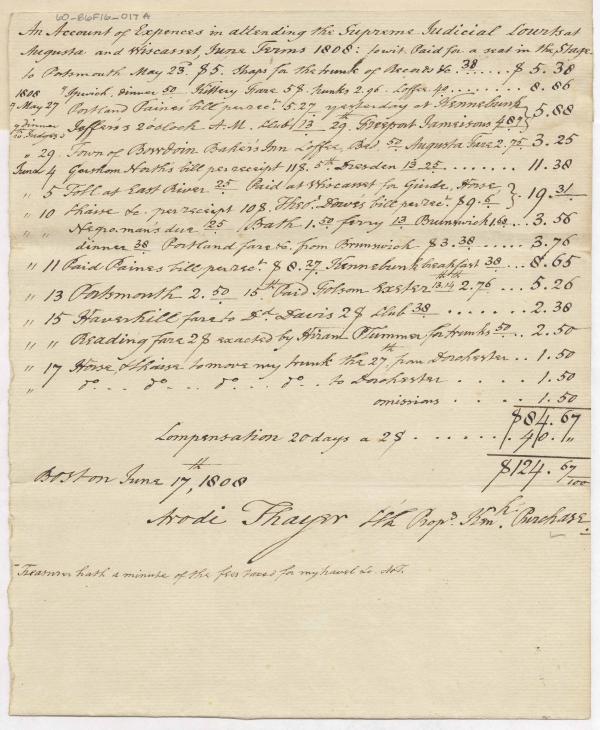 60-B6F16-017A
An Account of Expences in attending the Supreme Judicial Courts at
Augusta and Wiscasset, June Terms 1808: to wit. Paid for a seat in the Stage
to Portsmouth May 23d. $5. Straps for the trunk of Records &c. 38 .... $ 5.38
1808 " Ipswich, dinner 50 Kittery Fare 5$ trunks 2.96. Coffee 40 ....... 8.86
May 27 Portland Paine's bill per rect. 5.27 yesterday at Kennebunk
dinner Jefferss 2 oClock A.M. Club 13 29th Freeport Jamesons 48 } 5.88
" 29. Town of Bowdoin Baker's Inn Coffee, Bed 50 Augusta Fare 2.75 .. 3.25
June 4 Gershom North's bill per receipt 11$. 5th Dresden 13.25 ....... 11.38
" 5 Toll at East River 25 Paid at Wiscasset for Guide, Horse,
" 10 Chaise &c. per receipt 10$. Thos. Dawes bill per rec. $9.6 } 19.31
" " Negro man's due 125 Bath 1.50 ferry 13 Brunswick 1.68 ... 3.56
dinner 38 Portland fare &c. from Brunswick $3.38 ....... 3.76
" 11 Paid Paines bill per rect. $8.27 Kennebunk breakfast 38 .... 8.65
" 13 Portsmouth 2.50 15th Paid Folsom Exeter 13.14th 2.76 ... 5.26
" 15 Haverhill fare to Dd Davis 2$ Club 38 ....... 2.38
" " Reading fare 2$ exacted by Hiram Plummer for trunks 50 .. 2.50
" 17 Horse & Chaise to move my trunk the 27th from Dorchester .. 1.50
" do .. do ... do .. do .. to Dorchester ..... 1.50
omissions ..... 1.50
$84.67
Compensation 20 days a 2$ ...... 40. "
$124.67/100
Boston June 17th, 1808
Arodi Thayer Propr. Kenk. Purchase.
Treasurer hath a minute of the fees taxed for my travel &c.